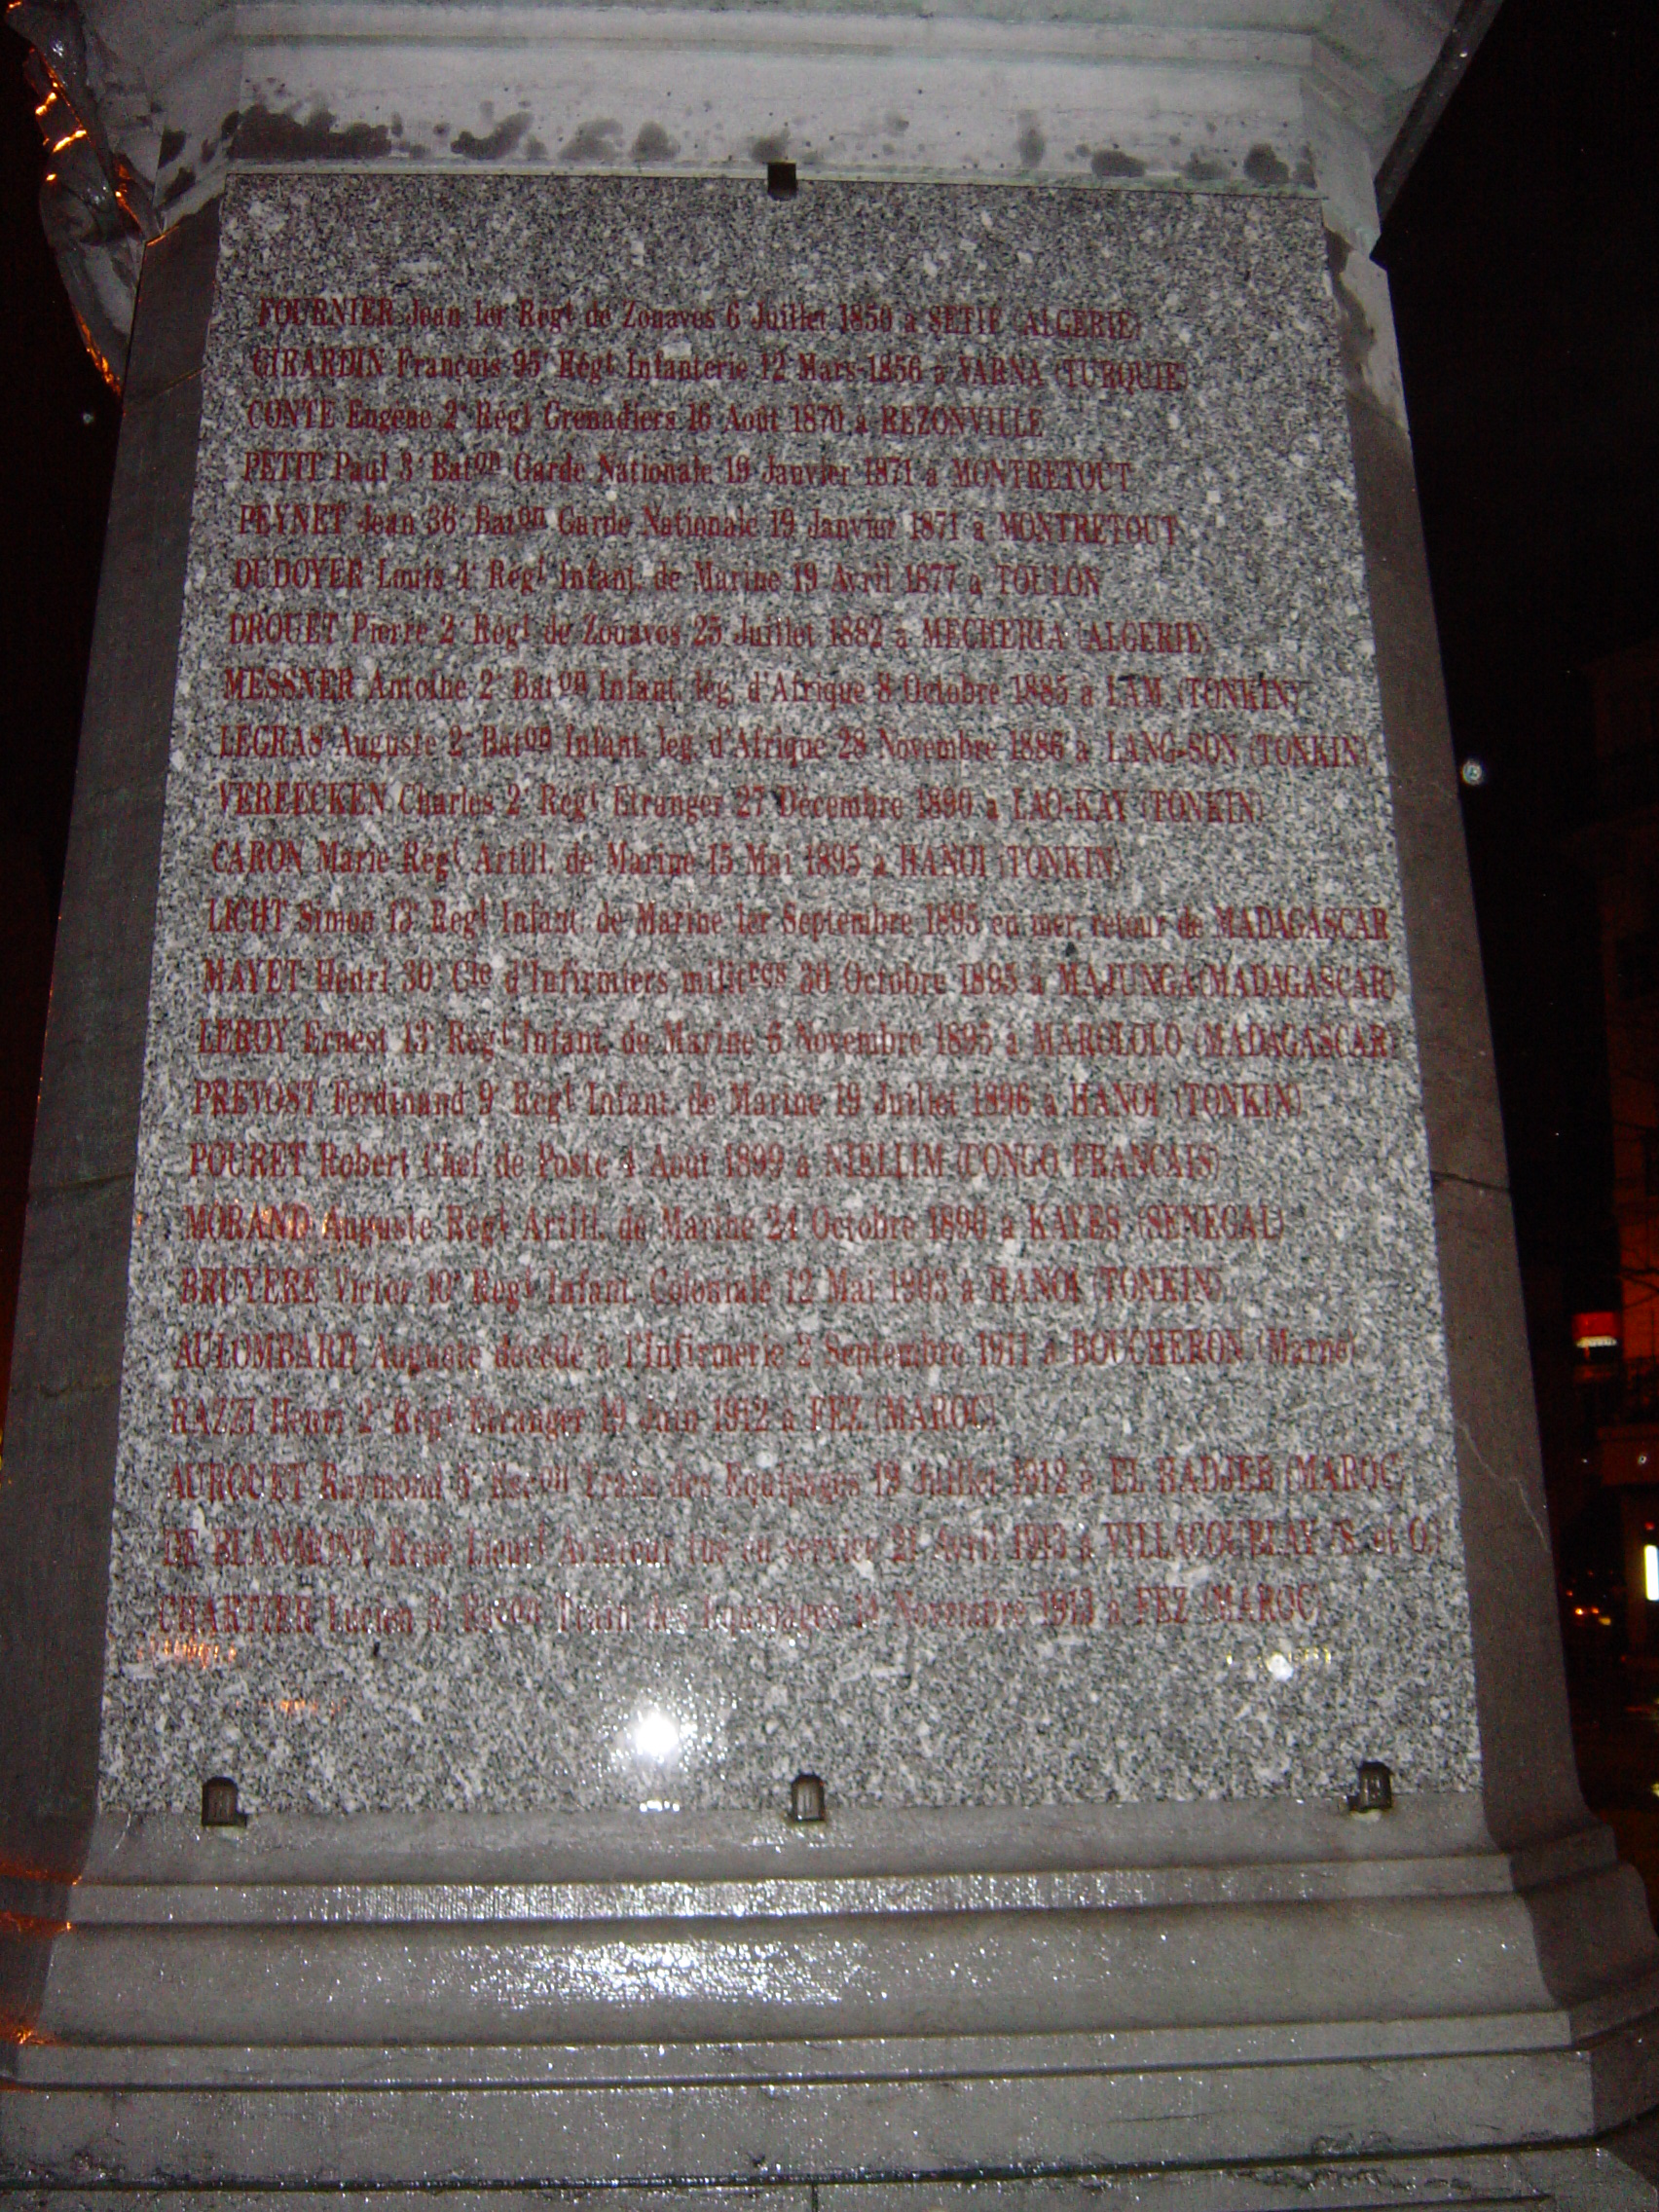 FOURNIER Jean 1er Régt de Zouaves 6 Juillet 1850 à SETIF (ALGERIE)
GIRARDIN François 95e Régt Infanterie 12 Mars 1856 à VARNA (TURQUIE)
CONTE Eugène 2e Régt Grenadiers 16 Août 1870 à REZONVILLE
PETIT Paul 3e Baton Garde Nationale 19 Janvier 1871 à MONTRETOUT
PEYNET Jean 36e Baton Garde Nationale 19 Janvier 1871 à MONTRETOUT
DUDOYER Louis 4e Régt Infant. de Marine 19 Avril 1877 à TOULON
DROUET Pierre 2e Régt de Zouaves 25 Juillet 1882 à MECHERIA (ALGERIE)
MESSNER Antoine 2e Baton Infant. lég. d'Afrique 8 Octobre 1885 à LAM (TONKIN)
LEGRAS Auguste 2e Baton Infant. leg. d'Afrique 28 Novembre 1886 à LANG-SON (TONKIN)
VEREECKEN Charles 2e Régt Etranger 27 Décembre 1890 à LAO-KAY (TONKIN)
CARON Marie Régt Artill. de Marine 15 Mai 1895 à HANOI (TONKIN)
LICHT Simon 13e Régt Infant. de Marine 1er Septembre 1895 en mer, retour de MADAGASCAR
MAYET Henri 30e Cie d'Infirmiers milit 30 Octobre 1895 à MAJUNGA (MADAGASCAR)
LEROY Ernest 13e Régt Infant. de Marine 5 Novembre 1895 à MAROLOLO (MADAGASCAR)
PREVOST Ferdinand 9e Régt Infant. de Marine 19 Juillet 1896 à HANOI (TONKIN)
POURET Robert Chef de Poste 4 Août 1899 à NIELLIM (CONGO FRANCAIS)
MORAND Auguste Régt Artill. de Marine 24 Octobre 1890 à KAYES (SENEGAL)
BRUYERE Victor 10e Régt Infant. Coloniale 12 Mai 1903 à HANOI (TONKIN)
AULOMBARD Auguste décédé à l'Infirmerie 2 Septembre 1911 à BOUCHERON (Maroc)
RAZZI Henri 2e Régt Etranger 19 Juin 1912 à FEZ (MAROC)
AUROUET Raymond 5e Baton Train des Equipages 19 Juillet 1912 à EL HADJEB (MAROC)
DE BLANMONT René Lieut Aviateur tué en service 21 Avril 1913 à VILLACOUBLAY (S. et O.)
CHARTIER Lucien 5e Baton Train des Equipages Novembre 1913 à FEZ (MAROC)